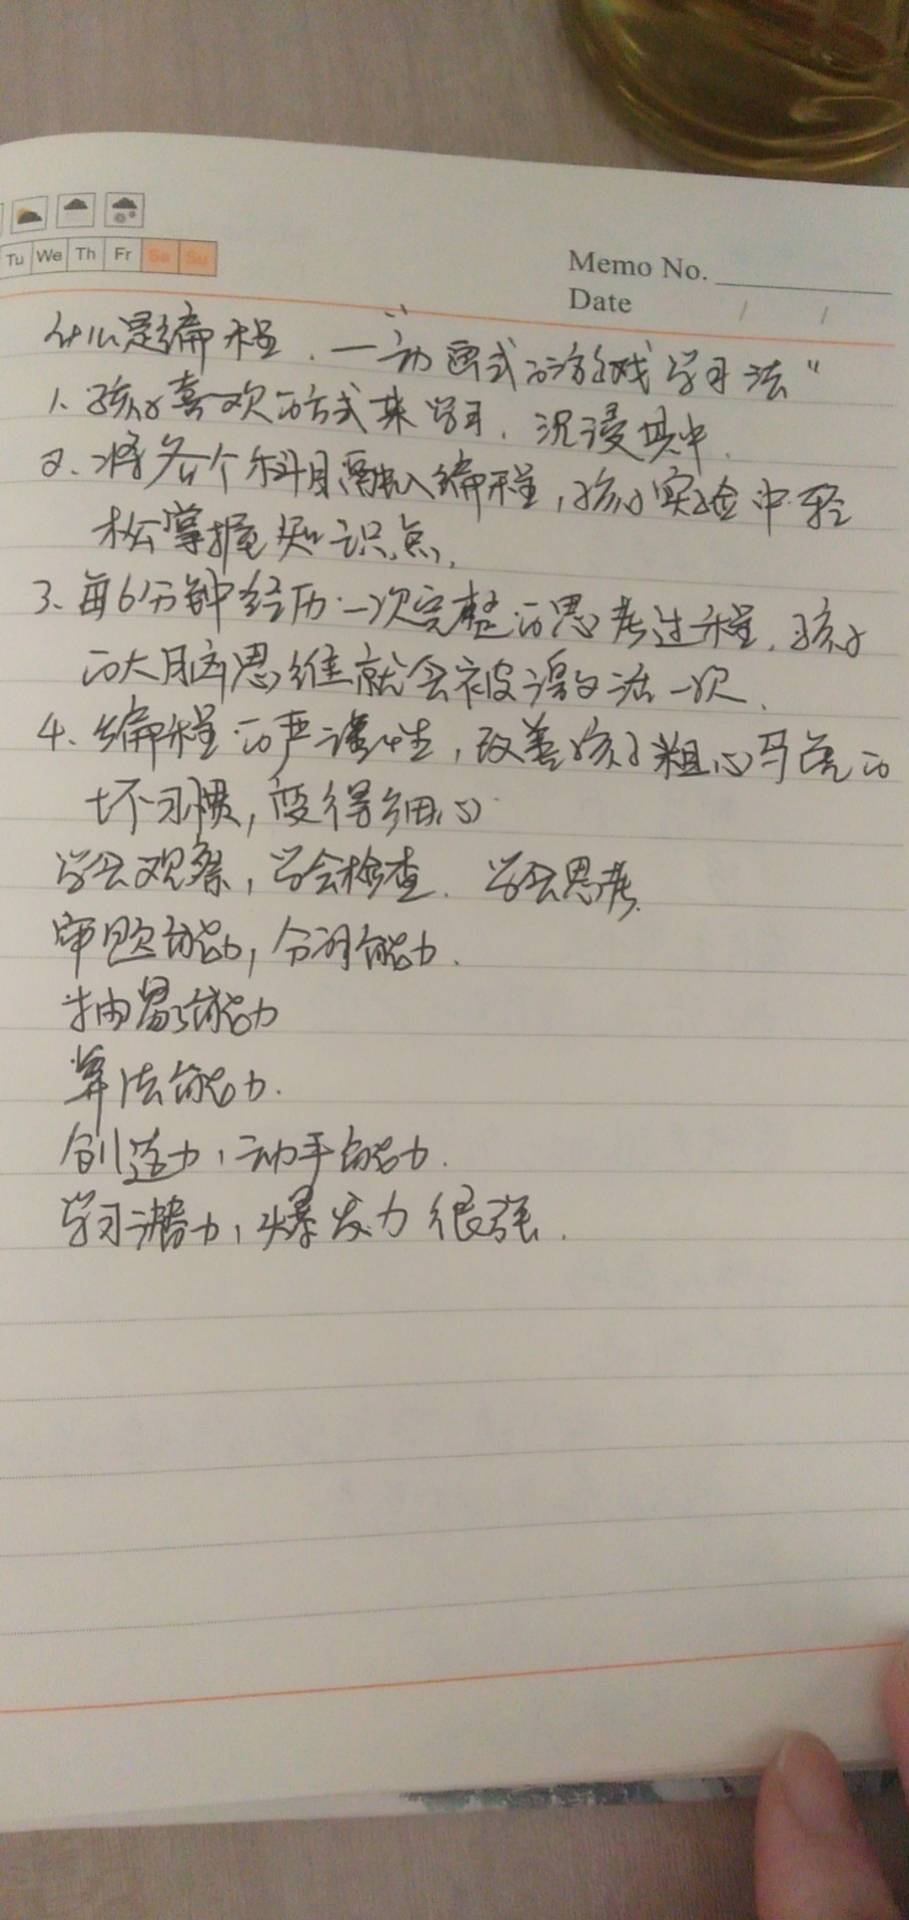 Tu We Th Fr Sa Su
Memo No.
Date / /
什么是编程.一"动画式的游戏学习法"
1、孩子喜欢的方式来学习.沉浸其中.
2、将各个科目融入编程,孩子实验中轻
松掌握知识点,
3、每6分钟经历一次完整的思考过程.孩子
的大脑思维就会被激活一次、
4、编程的严谨性,改善孩子粗心马虎的
坏习惯,变得细心
学会观察,学会检查.学会思考.
审题能力,分析能力.
抽象能力
算法能力.
创造力,动手能力.
学习潜力,爆发力很强.